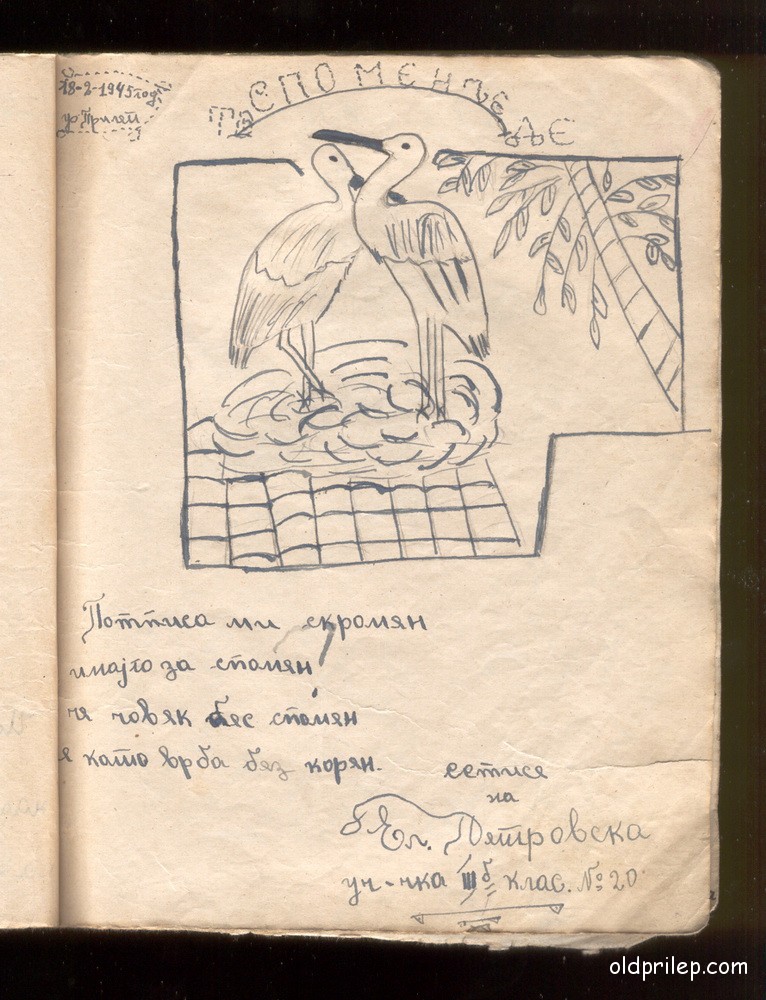 18-2-1945 год
гр. Прилеп
СПОМЕН
Потписа ми скромян
имајго за спомян
че човяк бес спомян
е като врба без корян.
сетисе
на
Ел. Петровска
уч-чка III б клас. № 20
oldprilep.com